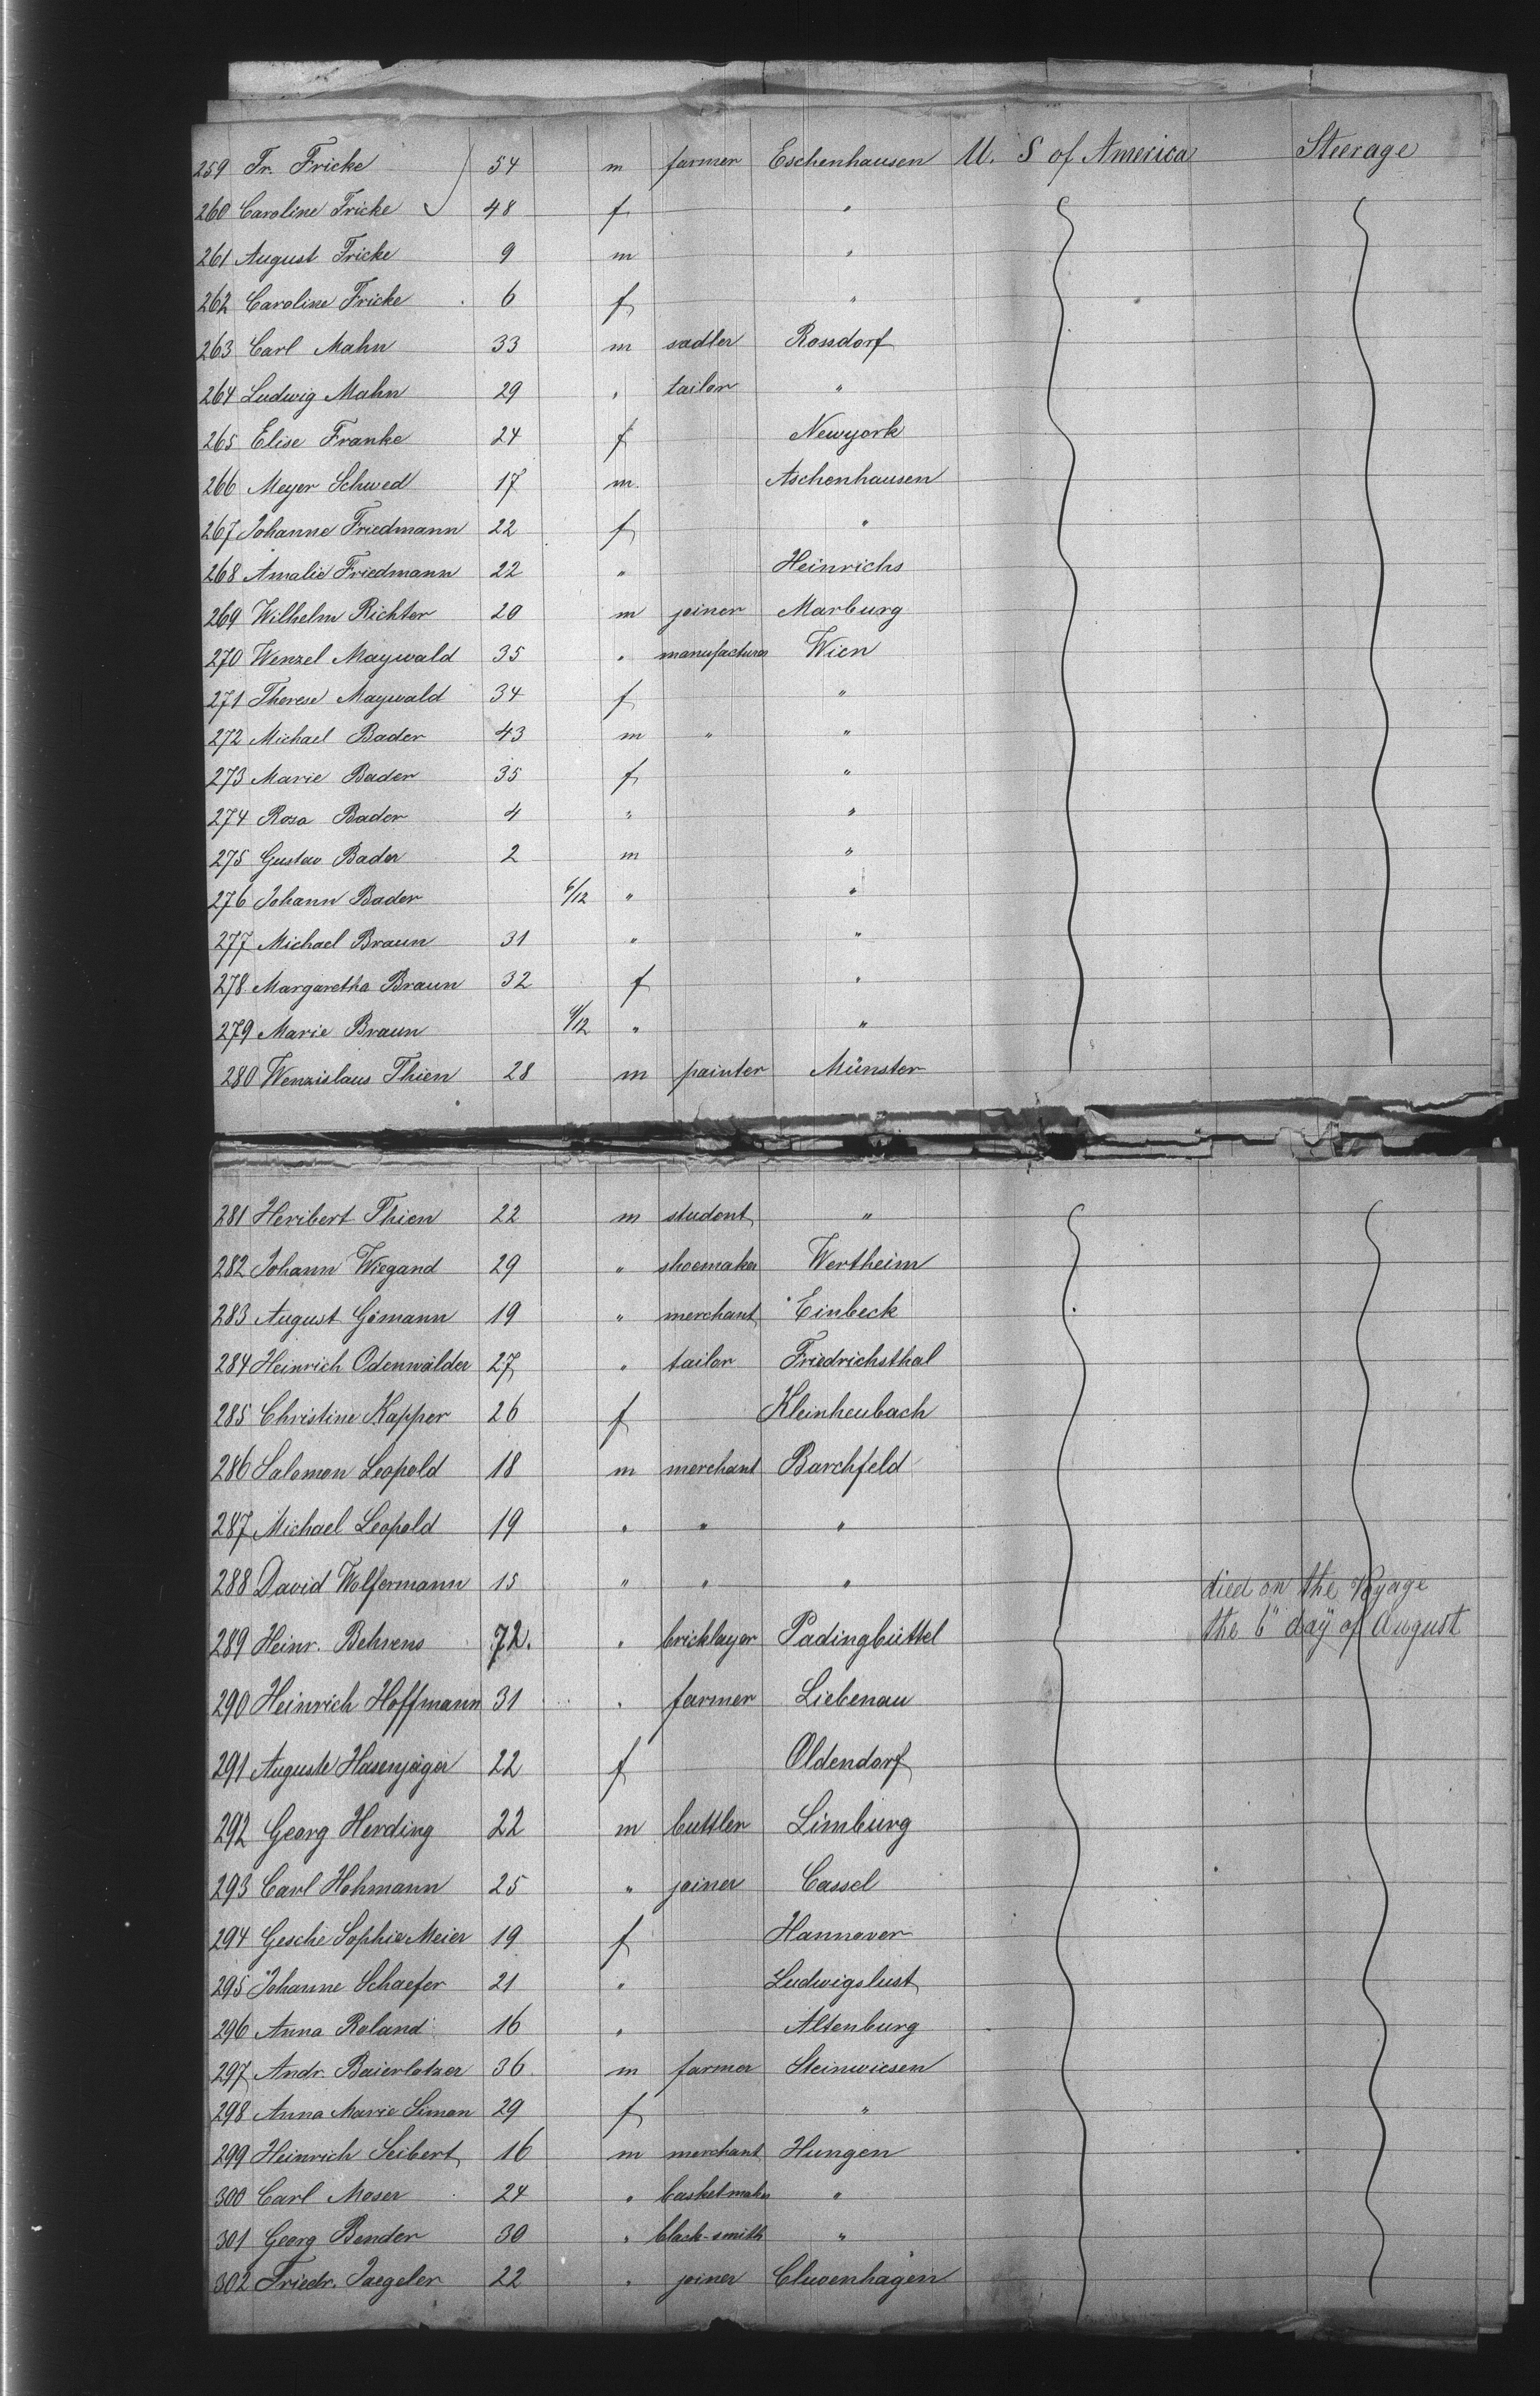 259 Fr. Fricke 54 m farmer Eschenhausen U. S of America Steerage
260 Caroline Fricke 48 f "
261 August Fricke 9 m "
262 Caroline Fricke 6 f "
263 Carl Mahn 33 m sadler Rossdorf
264 Ludwig Mahn 29 " tailor "
265 Elise Franke 24 f Newyork
266 Meyer Schwed 17 m. Aschenhausen
267 Johanne Friedmann 22 f "
268 Amalie Friedmann 22 " Heinrichs
269 Wilhelm Richter 20 m joiner Marburg
270 Wenzel Maywald 35 " manufacturer Wien
271 Therese Maywald 34 f "
272 Michael Bader 43 m " "
273 Marie Bader 35 f "
274 Rosa Bader 4 " "
275 Gustav Bader 2 m "
276 Johann Bader 6/12 " "
277 Michael Braun 31 " "
278 Margaretha Braun 32 f "
279 Marie Braun /12 " "
280 Wenzislaus Thien 28 m painter Münster
281 Heribert Thien 22 m student "
282 Johann Wiegand 29 " shoemaker Wertheim
283 August Gömann 19 " merchant Einbeck
284 Heinrich Odenwälder 27 " tailor Friedrichsthal
285 Christine Kapper 26 f Kleinheubach
286 Salomon Leopold 18 m merchant Barchfeld
287 Michael Leopold 19 " " "
288 David Wolfermann 15 " " " died on the Voyage
289 Heinr. Behrens 72. " bricklayer Padingbüttel the 6" day of August
290 Heinrich Hoffmann 31 " farmer Liebenau
291 Auguste Hasenjäger 22 f Oldendorf
292 Georg Herding 22 m buttler Limburg
293 Carl Hohmann 25 " joiner Cassel
294 Gesche Sophie Meier 19 f Hannover
295 Johanne Schaefer 21 " Ludwigslust
296 Anna Roland 16 " Altenburg
297 Andr. Baierlotzer 36 m farmer Steinwiesen
298 Anna Marie Simon 29 f "
299 Heinrich Seibert 16 m merchant Hungen
300 Carl Moser 24 " basketmaker "
301 Georg Bender 30 " black-smith "
302 Friedr. Jaegeler 22 " joiner Cluvenhagen